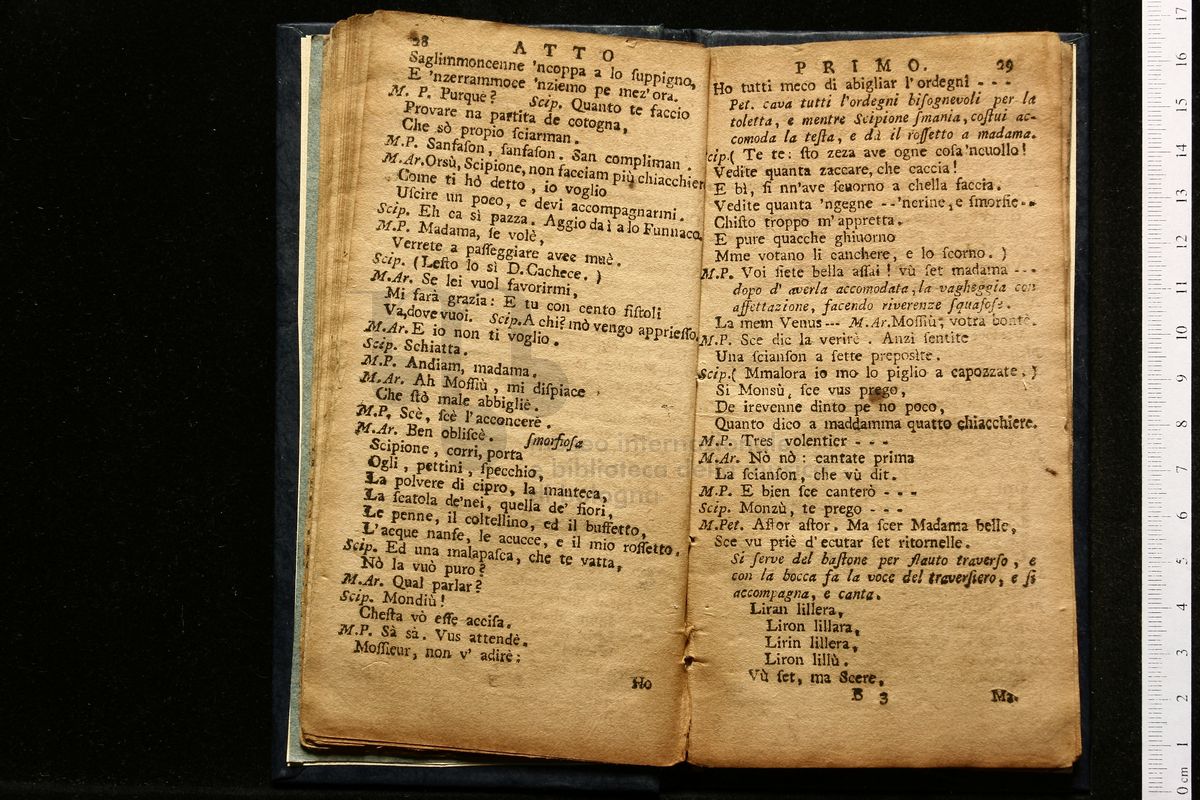 28 ATTO
Saglimmoncenne 'ncoppa a lo ſuppigno,
E 'nzerrammoce 'nziemo pe mez' ora.
M. P. Purquè? Scip. Quanto te faccio
Provare na partita de cotogna,
Che sò propio ſciarman.
M.P. Sanfaſon, ſanfaſon. San compliman.
M.Ar. Orsù, Scipione, non facciam più chiacchier
Come ti hò detto, io voglio
Uſcire un poco, e devi accompagnarmi.
Scip. Eh ca sì pazza. Aggio da ì a lo Funnaco.
M.P. Madama, ſe volè,
Verrete a paſſeggiare avec muè.
Scip. (Leſto lo sì D. Cachece.)
M.Ar. Se lei vuol favorirmi,
Mi farà grazia: E tu con cento fiſtoli
Va, dove vuoi. Scip. A chi? mò vengo apprieſſo.
M.Ar. E io non ti voglio.
Scip. Schiatta.
M.P. Andiam, madama.
M.Ar. Ah Moſſiù, mi diſpiace
Che ſtò male abbigliè.
M.P. Scè, ſcè l'acconcerè.
M.Ar. Ben obliſcè. ſmorfioſa
Scipione, corri, porta
Ogli, pettini, ſpecchio,
La polvere di cipro, la manteca,
La ſcatola de'nei, quella de' fiori,
Le penne, il coltellino, ed il buffetto,
L'acque nanfe, le acucce, e il mio roſſetto.
Scip. Ed una malapaſca, che te vatta,
Nò la vuò puro?
M.Ar. Qual parlar?
Scip. Mondiù!
Cheſta vò eſſe acciſa.
M.P. Sà sà. Vus attendè.
Moſſieur, non v' adirè:
Ho
PRIMO. 29
Ho tutti meco di abigliar l'ordegni - - -
Pet. cava tutti l'ordegni biſognevoli per la
toletta, e mentre Scipione ſmania, coſtui ac-
comoda la teſta, e dà il roſſetto a madama.
cip.( Te te: ſto zeza ave ogne coſa 'ncuollo!
Vedite quanta zaccare, che caccia!
E bì, ſi nn'ave ſcuorno a chella faccia.
Vedite quanta 'ngegne --'nerine, e ſmorfie--
Chiſto troppo m'appretta.
E pure quacche ghiuorno
Mme votano li canchere, e lo ſcorno. )
M.P. Voi ſiete bella aſſai! vù ſet madama ---
dopo d' averla accomodata, la vagheggia con
affettazione, facendo riverenze ſquaſoſe.
La mem Venus--- M.Ar. Moſſiù, votra bontè.
M.P. Sce dic la verirè. Anzi ſentite
Una ſcianſon a ſette prepoſite.
Scip.( Mmalora io mo lo piglio a capozzate. )
Si Monsù, ſce vus prego,
De irevenne dinto pe no poco,
Quanto dico a maddamma quatto chiacchiere.
M.P. Tres volentier - - -
M.Ar. Nò nò: cantate prima
La ſcianſon, che vù dit.
M.P. E bien ſce canterò - - -
Scip. Monzù, te prego - - -
M.Pet. Aſtor aſtor. Ma ſcer Madama belle,
Sce vu priè d'ecutar ſet ritornelle.
Si ſerve del baſtone per flauto traverſo, e
con la bocca fa la voce del traverſiero, e ſi
accompagna, e canta.
Liran lillera,
Liron lillara,
Lirin lillera,
Liron lillù.
Vù ſet, ma Scere,
B 3 Ma.